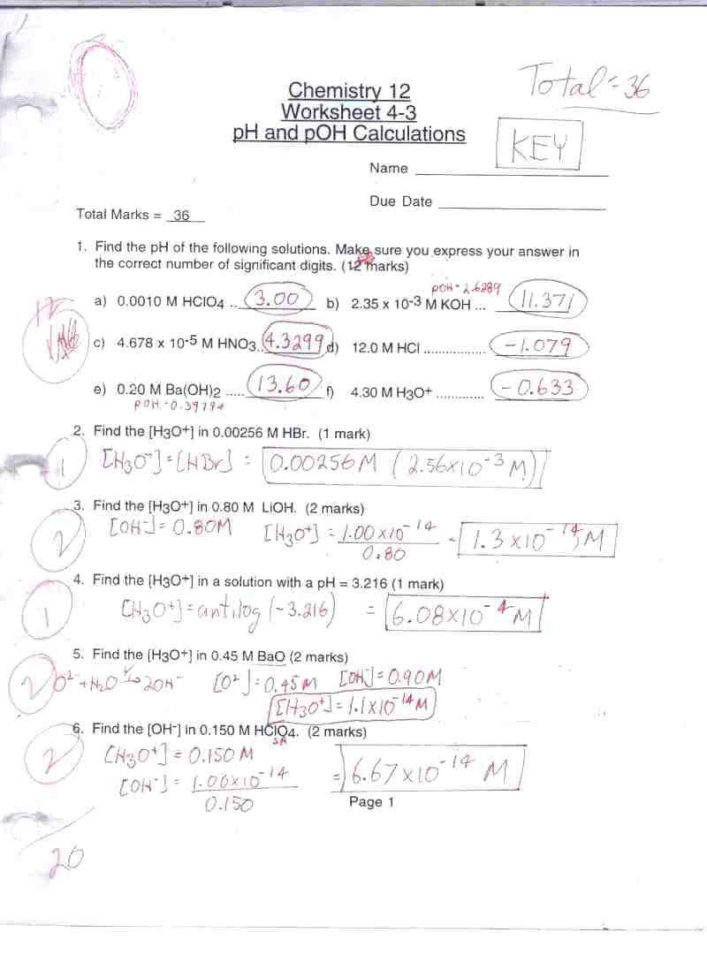 Total = 36
Chemistry 12
Worksheet 4-3
pH and pOH Calculations
KEY
Name
Due Date
Total Marks = 36
1. Find the pH of the following solutions. Make sure you express your answer in
the correct number of significant digits. (12 marks)
pOH = 2.6289
a) 0.0010 M HClO4 .. 3.00 b) 2.35 x 10-3 M KOH ... 11.371
c) 4.678 x 10-5 M HNO3.. 4.3299 d) 12.0 M HCl ............... -1.079
e) 0.20 M Ba(OH)2 ..... 13.60 f) 4.30 M H3O+ ............ -0.633
pOH = 0.39794
2. Find the [H3O+] in 0.00256 M HBr. (1 mark)
1 [H3O+] = [HBr] = 0.00256 M (2.56x10-3 M)
3. Find the [H3O+] in 0.80 M LiOH. (2 marks)
2 [OH-] = 0.80M [H3O+] = 1.00 x10-14 = 1.3 x10-14 M
0.80
4. Find the [H3O+] in a solution with a pH = 3.216 (1 mark)
1 [H3O+] = antilog (-3.216) = 6.08x10-4 M
5. Find the [H3O+] in 0.45 M BaO (2 marks)
2 O2- + H2O → 2OH- [O2-] = 0.45M [OH-] = 0.90M
[H3O+] = 1.1x10-14 M
6. Find the [OH-] in 0.150 M HClO4. (2 marks)
SA
2 [H3O+] = 0.150 M
[OH-] = 1.00x10-14 = 6.67x10-14 M
0.150
Page 1
20